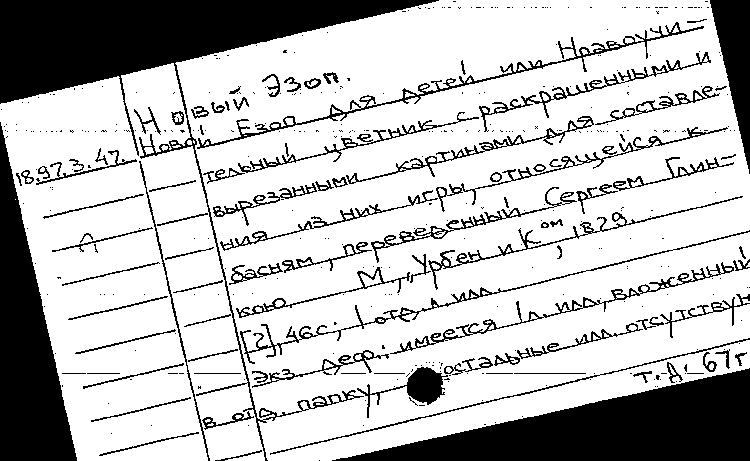 Новый Эзоп.
18.97.3.47. Новой Езоп для детей или Нравоучи-
тельный цветник с раскрашенными и
вырезанными картинами для составле-
А ния из них игры, относящейся к
басням, переведенный Сергеем Глин-
кою. М., Урбен и К ом, 1829.
[2], 46с; 1 отд. л илл.
Экз. деф.: имеется 1л. илл., вложенный
в отд. папку, остальные илл. отсутствую
т.д. 67г